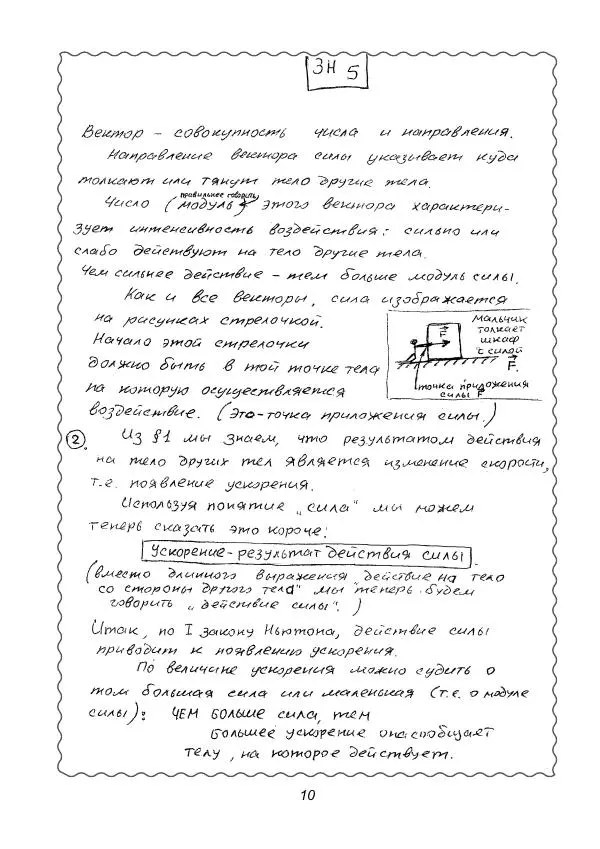 ЗН 5
Вектор – совокупность числа и направления.
Направление вектора силы указывает куда
толкают или тянут тело другие тела.
правильнее говорить
Число (модуль) этого вектора характери-
зует интенсивность воздействия: сильно или
слабо действуют на тело другие тела.
Чем сильнее действие – тем больше модуль силы.
Как и все векторы, сила изображается
на рисунках стрелочкой.
Начало этой стрелочки
должно быть в той точке тела
на которую осуществляется
воздействие. (Это – точка приложения силы.)
Мальчик
толкает
шкаф
с силой
F.
F
точка приложения
силы F
2. Из §1 мы знаем, что результатом действия
на тело других тел является изменение скорости,
т.е. появление ускорения.
Используя понятие „сила" мы можем
теперь сказать это короче:
Ускорение – результат действия силы.
(вместо длинного выражения „действие на тело
со стороны другого тела" мы теперь будем
говорить „действие силы".)
Итак, по I закону Ньютона, действие силы
приводит к появлению ускорения.
По величине ускорения можно судить о
том большая сила или маленькая (т.е. о модуле
силы): ЧЕМ БОЛЬШЕ сила, тем
БОЛЬШЕЕ ускорение она сообщает
телу, на которое действует.
10